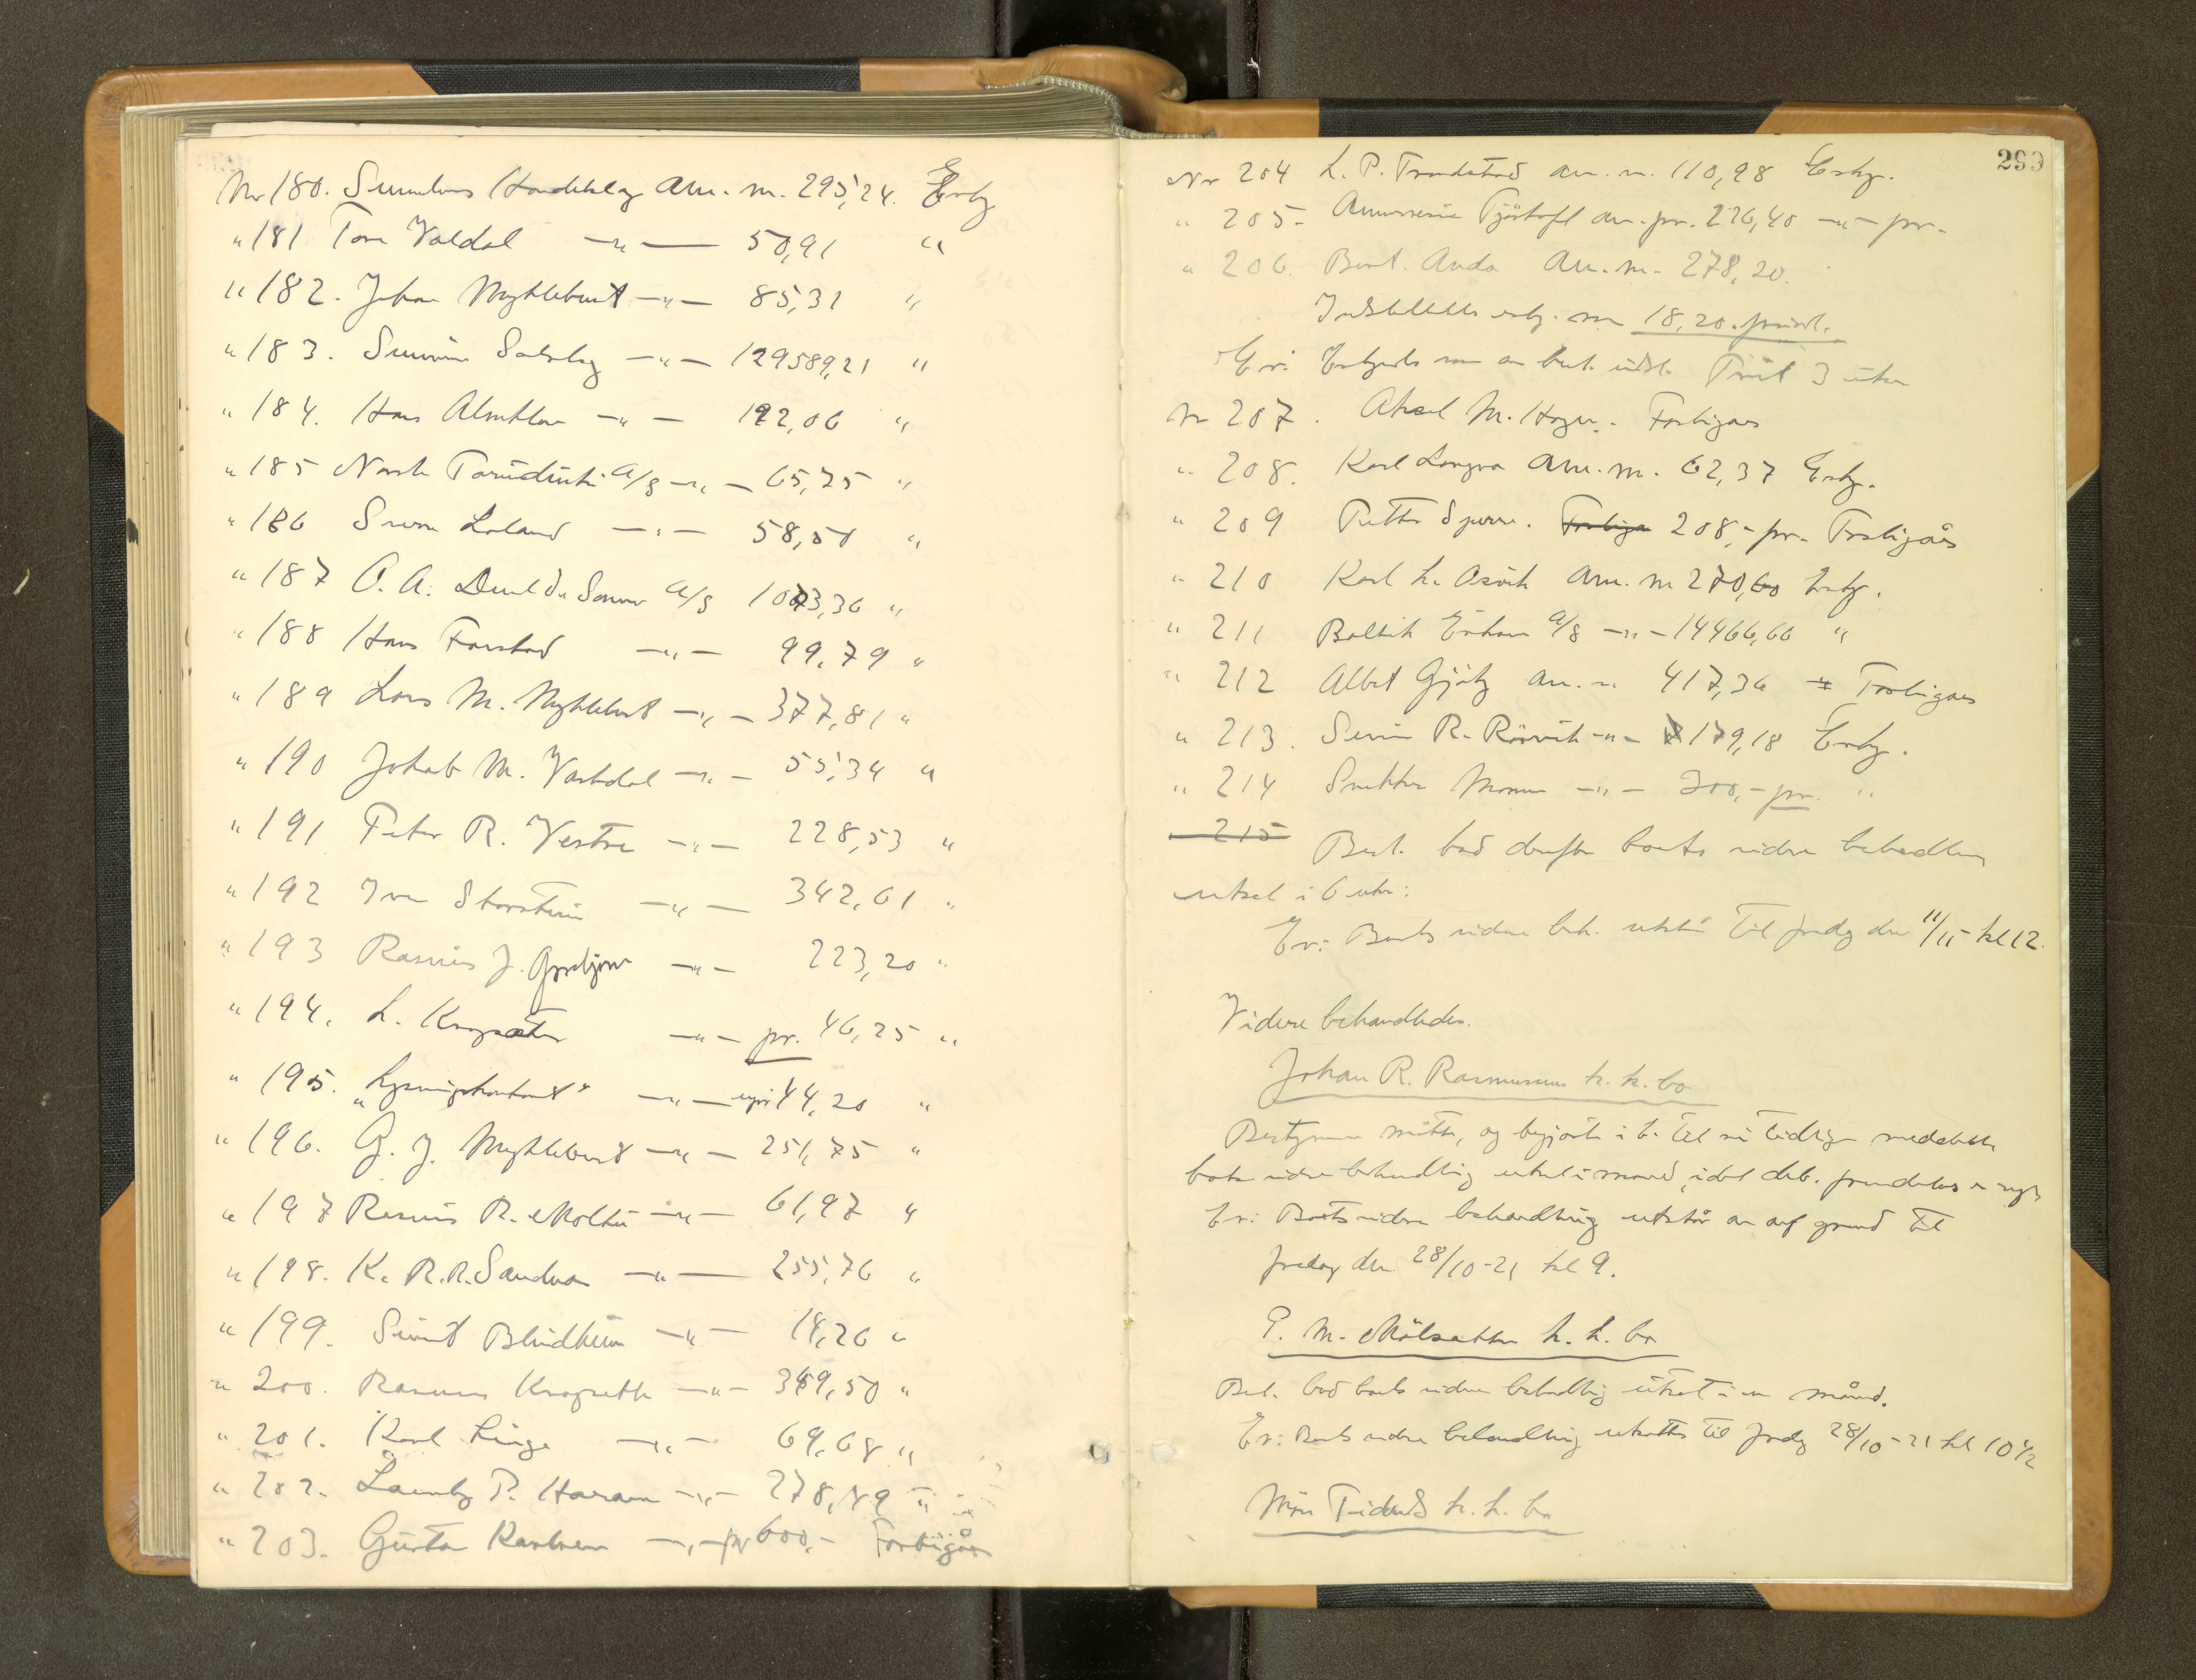 Nr 180. Sunnmøre Handelslag Anm. m. 295,24. Erkj
" 181 Tore Valdal —"— 50,91 "
" 182. Johan Myklebust —"— 85,31 "
" 183. Sunnmøre Salslag —"— 129589,21 "
" 184. Hans Almklov —"— 192,06 "
" 185 Norsk A/S —"— 65,75 "
" 186 Sverre Loland —"— 58,50 "
" 187 O. A. Devold Sønner A/S 1073,36 "
" 188 Hans Farstad —"— 99,79 "
" 189 Lars M. Myklebust —"— 377,81 "
" 190 Jakob M. Vartdal —"— 55,34 "
" 191 Peter R. Vestre —"— 228,53 "
" 192 Iver Storstein —"— 342,61 "
" 193 Rasmus J. —"— 223,20 "
" 194. L. Krogsæter —"— pr. 46,25 "
" 195. "Lysningskontoret" —"— 44,20 "
" 196. G. J. Myklebust —"— 251,75 "
" 197 Rasmus R. Molthu —"— 61,97 "
" 198. K. R. R. Sandvær —"— 255,76 "
" 199. Sivert Blindheim —"— 14,26 "
" 200. Rasmus Krogseth —"— 349,50 "
" 201. Karl Linge —"— 69,68 "
" 202. P. Haram —"— 278,49 "
" 203. Gustav Karlsen —"— pr 600,- Forbigåes
293
Nr 204 L. P. Trandstad an. m. 110,98 Erkj.
" 205- Tjørtoft an. pr. 226,40 —"— pr.
" 206. Bernt. Anda Am. m. 278,20.
Indstilledes erkj. m 18,20. priort.
Er: Erkjendes som av best. indst. Frist 3 uker
Nr 207. Aksel M. Hagen. Forbigaaes
" 208. Karl Longva Anm. m. 62,37 Erkj.
" 209 Petter Sperre. Forbigaa 208,- pr. Forbigåes
" 210 Karl L. Aasvik Anm. m 270,60 Erkj.
" 211 Baltik Export A/S —"— 14466,66 "
" 212 Albert Gjørtz an. m 417,36 " Forbigaaes
" 213. Severin R. Rørvik —"— 179,18 Erkj.
" 214 Snekker Monsen —"— 300,- pr. "
215
Best. bad derefter boets videre behandling
utsat i 6 uker:
Er: Boets videre beh. utstår til fredag den 11/11- kl 12.
Videre behandledes.
Johan R. Rasmussens k. k. bo
Bestyreren møtte, og begjærte i h. til sin tidligere meddelelse
boets videre behandling utsat i maaned, idet deb.
Er: Boets videre behandling utstår av anf grund til
fredag den 28/10-21 kl 9.
P. M. Mølsæther k. k. bo
Best. bad boets videre behandling utsat i en måned.
Er: Boets videre behandling utsattes til fredag 28/10-21 kl 10½
Møre Tidende k. k. bo